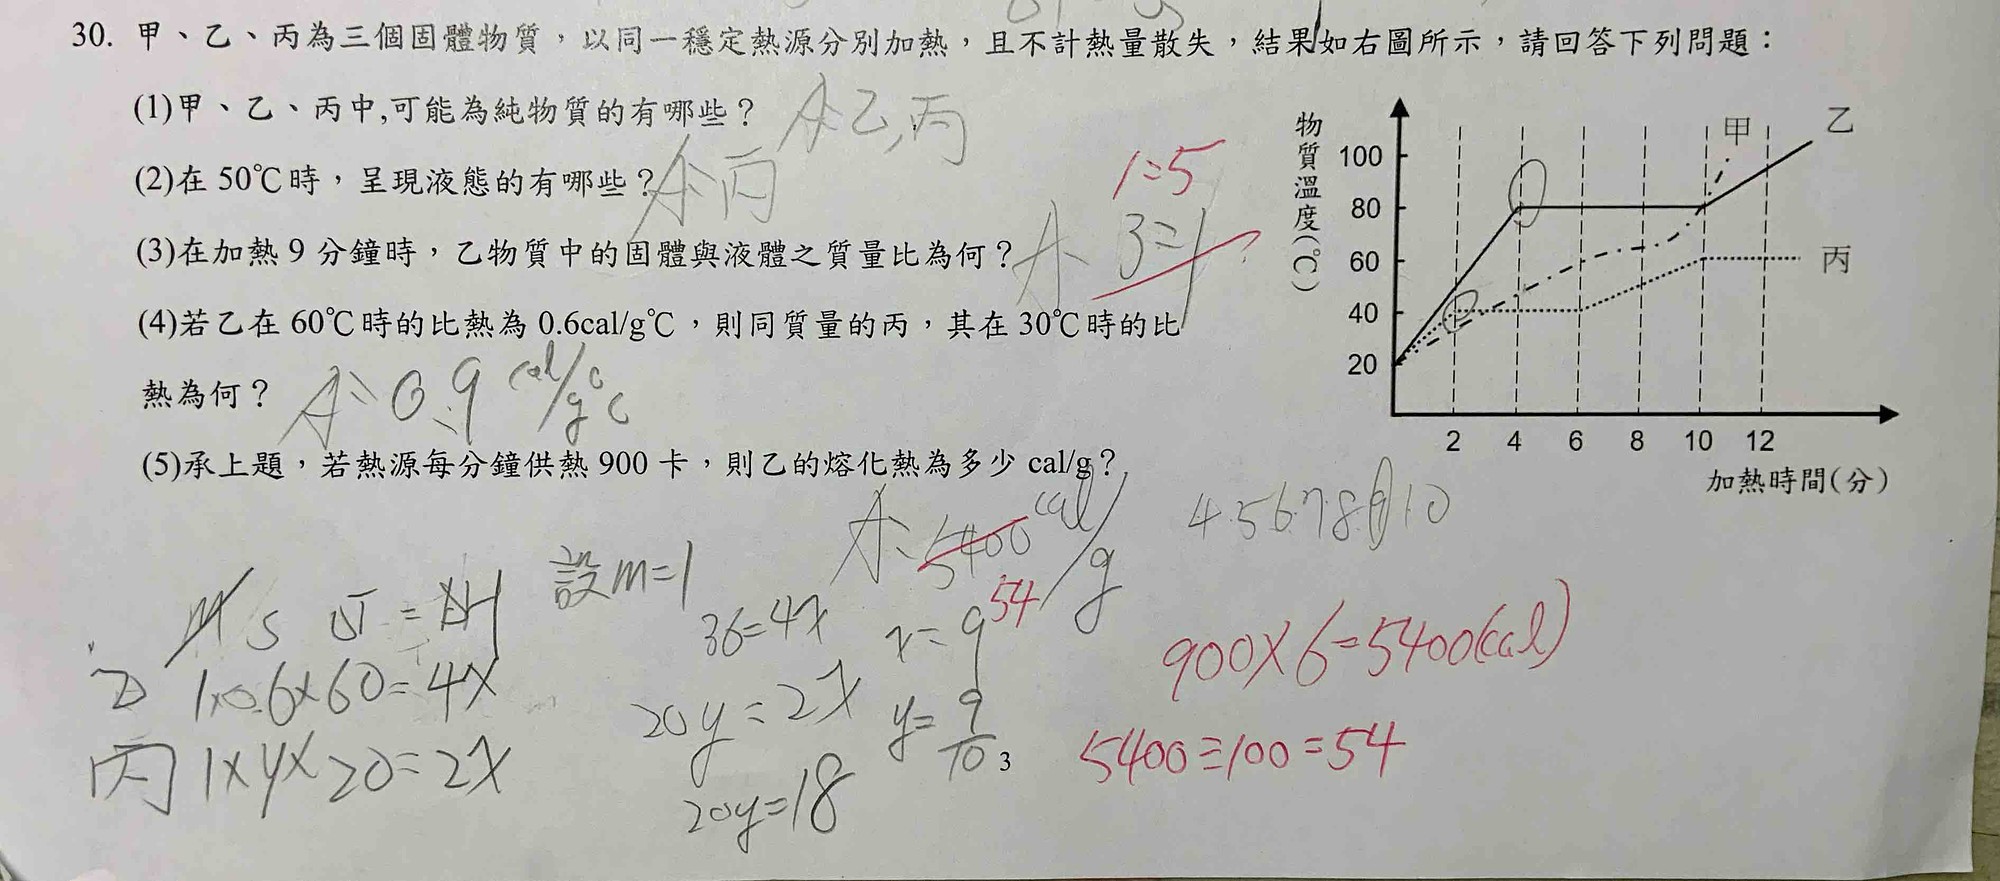 30. 甲、乙、丙為三個固體物質，以同一穩定熱源分別加熱，且不計熱量散失，結果如右圖所示，請回答下列問題：
(1)甲、乙、丙中,可能為純物質的有哪些？ A:乙,丙
(2)在 50℃時，呈現液態的有哪些？ A:丙
1:5
(3)在加熱 9 分鐘時，乙物質中的固體與液體之質量比為何？ A: 3:1 ?
(4)若乙在 60℃時的比熱為 0.6cal/g℃，則同質量的丙，其在 30℃時的比
熱為何？ A: 0.9 cal/g℃
(5)承上題，若熱源每分鐘供熱 900 卡，則乙的熔化熱為多少 cal/g？
物質溫度(℃)
甲
乙
丙
100
80
60
40
20
2 4 6 8 10 12
加熱時間(分)
A: 5400 cal/g
54
4.5.6.7.8.9.10
設m=1
M S ΔT = ΔH
乙 1×0.6×60=4x
丙 1×y×20=2x
36=4x x=9
20y=2x y=9/10
20y=18
900×6=5400(cal)
5400÷100=54
3